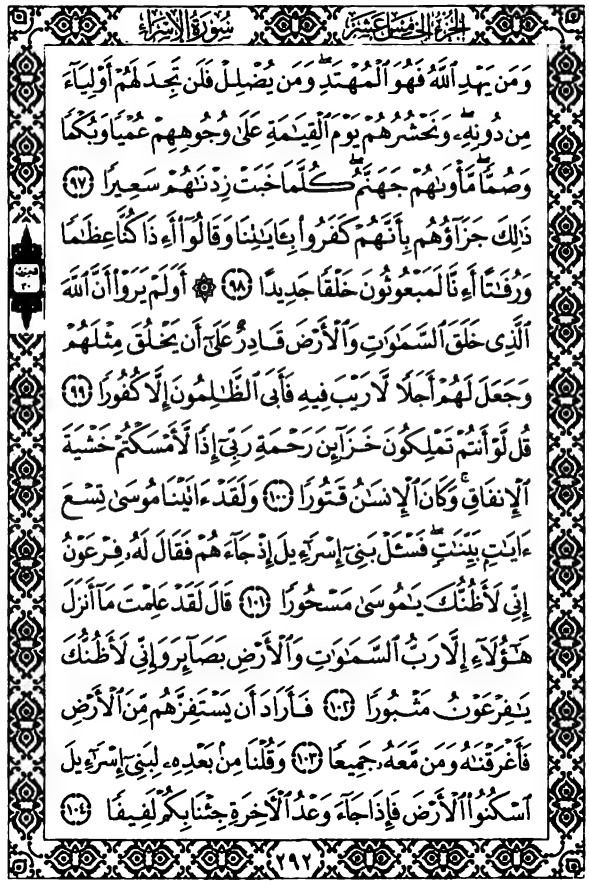 الجزء الخامس عشر
سورة الإسراء
وَمَن يَهْدِ ٱللَّهُ فَهُوَ ٱلْمُهْتَدِۖ وَمَن يُضْلِلْ فَلَن تَجِدَ لَهُمْ أَوْلِيَآءَ
مِن دُونِهِۦۖ وَنَحْشُرُهُمْ يَوْمَ ٱلْقِيَٰمَةِ عَلَىٰ وُجُوهِهِمْ عُمْيًا وَبُكْمًا
وَصُمًّاۖ مَّأْوَىٰهُمْ جَهَنَّمُۖ كُلَّمَا خَبَتْ زِدْنَٰهُمْ سَعِيرًا ٩٧
ذَٰلِكَ جَزَآؤُهُم بِأَنَّهُمْ كَفَرُوا۟ بِـَٔايَٰتِنَا وَقَالُوٓا۟ أَءِذَا كُنَّا عِظَٰمًا
وَرُفَٰتًا أَءِنَّا لَمَبْعُوثُونَ خَلْقًا جَدِيدًا ٩٨ ۞ أَوَلَمْ يَرَوْا۟ أَنَّ ٱللَّهَ
ٱلَّذِى خَلَقَ ٱلسَّمَٰوَٰتِ وَٱلْأَرْضَ قَادِرٌ عَلَىٰٓ أَن يَخْلُقَ مِثْلَهُمْ
وَجَعَلَ لَهُمْ أَجَلًا لَّا رَيْبَ فِيهِ فَأَبَى ٱلظَّٰلِمُونَ إِلَّا كُفُورًا ٩٩
قُل لَّوْ أَنتُمْ تَمْلِكُونَ خَزَآئِنَ رَحْمَةِ رَبِّىٓ إِذًا لَّأَمْسَكْتُمْ خَشْيَةَ
ٱلْإِنفَاقِۚ وَكَانَ ٱلْإِنسَٰنُ قَتُورًا ١٠٠ وَلَقَدْ ءَاتَيْنَا مُوسَىٰ تِسْعَ
ءَايَٰتٍۭ بَيِّنَٰتٍۖ فَسْـَٔلْ بَنِىٓ إِسْرَٰٓءِيلَ إِذْ جَآءَهُمْ فَقَالَ لَهُۥ فِرْعَوْنُ
إِنِّى لَأَظُنُّكَ يَٰمُوسَىٰ مَسْحُورًا ١٠١ قَالَ لَقَدْ عَلِمْتَ مَآ أَنزَلَ
هَٰٓؤُلَآءِ إِلَّا رَبُّ ٱلسَّمَٰوَٰتِ وَٱلْأَرْضِ بَصَآئِرَ وَإِنِّى لَأَظُنُّكَ
يَٰفِرْعَوْنُ مَثْبُورًا ١٠٢ فَأَرَادَ أَن يَسْتَفِزَّهُم مِّنَ ٱلْأَرْضِ
فَأَغْرَقْنَٰهُ وَمَن مَّعَهُۥ جَمِيعًا ١٠٣ وَقُلْنَا مِنۢ بَعْدِهِۦ لِبَنِىٓ إِسْرَٰٓءِيلَ
ٱسْكُنُوا۟ ٱلْأَرْضَ فَإِذَا جَآءَ وَعْدُ ٱلْءَاخِرَةِ جِئْنَا بِكُمْ لَفِيفًا ١٠٤
٢٩٢